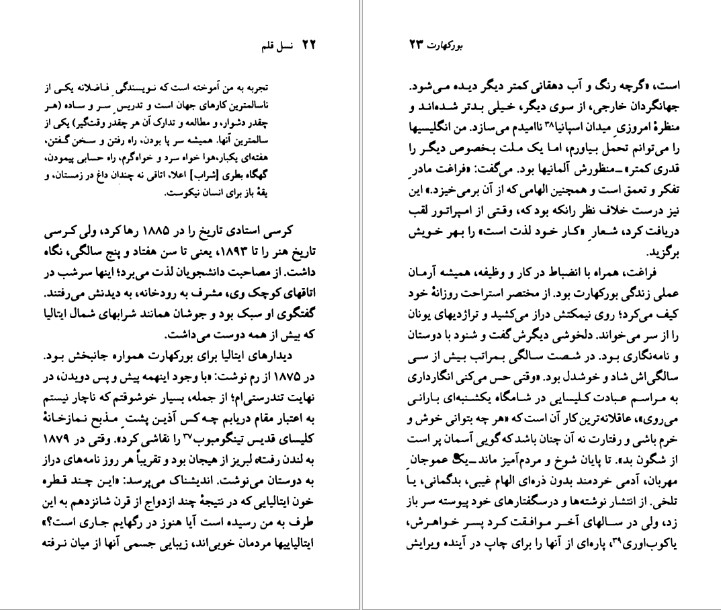 ۲۲ نسل قلم
تجربه به من آموخته است که نویسندگیِ فاضلانه یکی از
ناسالمترین کارهای جهان است و تدریس سر و ساده (هر
چقدر دشوار، و مطالعه و تدارک آن هر چقدر وقتگیر) یکی از
سالمترین آنها. همیشه سر پا بودن، راه رفتن و سخن گفتن،
هفته‌ای یکبار، هوا خواه سرد و خواه گرم، راه حسابی پیمودن،
گهگاه بطری [شراب] اعلا، اتاقی نه چندان داغ در زمستان، و
یقهٔ باز برای انسان نیکوست.
کرسی استادی تاریخ را در ۱۸۸۵ رها کرد، ولی کرسی
تاریخ هنر را تا ۱۸۹۳، یعنی تا سن هفتاد و پنج سالگی، نگاه
داشت. از مصاحبت دانشجویان لذت می‌برد؛ اینها سرشب در
اتاقهای کوچک وی، مشرف به رودخانه، به دیدنش می‌رفتند.
گفتگوی او سبک بود و جوشان همانند شرابهای شمال ایتالیا
که بیش از همه دوست می‌داشت.
دیدارهای ایتالیا برای بورکهارت همواره جانبخش بود.
در ۱۸۷۵ از رم نوشت: «با وجود اینهمه پیش و پس دویدن، در
نهایت تندرستی‌ام؛ از جمله، بسیار خوشوقتم که ناچار نیستم
به اعتبار مقام دریابم چه کس آذین پشتِ مذبح نمازخانهٔ
کلیسای قدیس تینگومبوب۳۷ را نقاشی کرد». وقتی در ۱۸۷۹
به لندن رفت، لبریز از هیجان بود و تقریباً هر روز نامه‌های دراز
به دوستان می‌نوشت. اندیشناک می‌پرسد: «این چند قطره
خون ایتالیایی که در نتیجهٔ چند ازدواج از قرن شانزدهم به این
طرف به من رسیده است آیا هنوز در رگهایم جاری است؟»
ایتالیاییها مردمان خوبی‌اند، زیبایی جسمی آنها از میان نرفته
بورکهارت ۲۳
است، «گرچه رنگ و آب دهقانی کمتر دیگر دیده می‌شود.
جهانگردان خارجی، از سوی دیگر، خیلی بدتر شده‌اند و
منظرهٔ امروزیِ میدان اسپانیا۳۸ ناامیدم می‌سازد. من انگلیسیها
را می‌توانم تحمل بیاورم، اما یک ملت بخصوص دیگر را
قدری کمتر» ــ منظورش آلمانیها بود. می‌گفت: «فراغت مادرِ
تفکر و تعمق است و همچنین الهامی که از آن برمی‌خیزد.» این
نیز درست خلاف نظر رانکه بود که، وقتی از امپراتور لقب
دریافت کرد، شعارِ «کار خود لذت است» را بهر خویش
برگزید.
فراغت، همراه با انضباط در کار و وظیفه، همیشه آرمان
عملی زندگی بورکهارت بود. از مختصر استراحت روزانهٔ خود
کیف می‌کرد؛ روی نیمکتش دراز می‌کشید و تراژدیهای یونان
را از سر می‌خواند. دلخوشی دیگرش گفت و شنود با دوستان
و نامه‌نگاری بود. در شصت سالگی بمراتب بیش از سی
سالگی‌اش شاد و خوشدل بود. «وقتی حس می‌کنی انگارداری
به مراسم عبادت کلیسایی در شامگاه یکشنبه‌ای بارانی
می‌روی»، عاقلانه‌ترین کار آن است که «هر چه بتوانی خوش و
خرم باشی و رفتارت نه آن چنان باشد که گویی آسمان پر است
از شگون بد». تا پایان شوخ و مردم‌آمیز ماند ــ یک عموجانِ
مهربان، آدمی خردمند بدون ذره‌ای الهام غیبی، بدگمانی، یا
تلخی. از انتشار نوشته‌ها و درسگفتارهای خود پیوسته سر باز
زد، ولی در سالهای آخر موافقت کرد پسر خواهرش،
یاکوب اوری۳۹، پاره‌ای از آنها را برای چاپ در آینده ویرایش